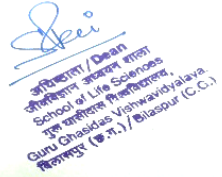 अधिष्ठाता/Dean
जीवविज्ञान अध्ययन शाला
School of Life Sciences
गुरु घासीदास विश्वविद्यालय,
Guru Ghasidas Vishwavidyalaya
बिलासपुर (छ.ग.)/Bilaspur (C.G.)